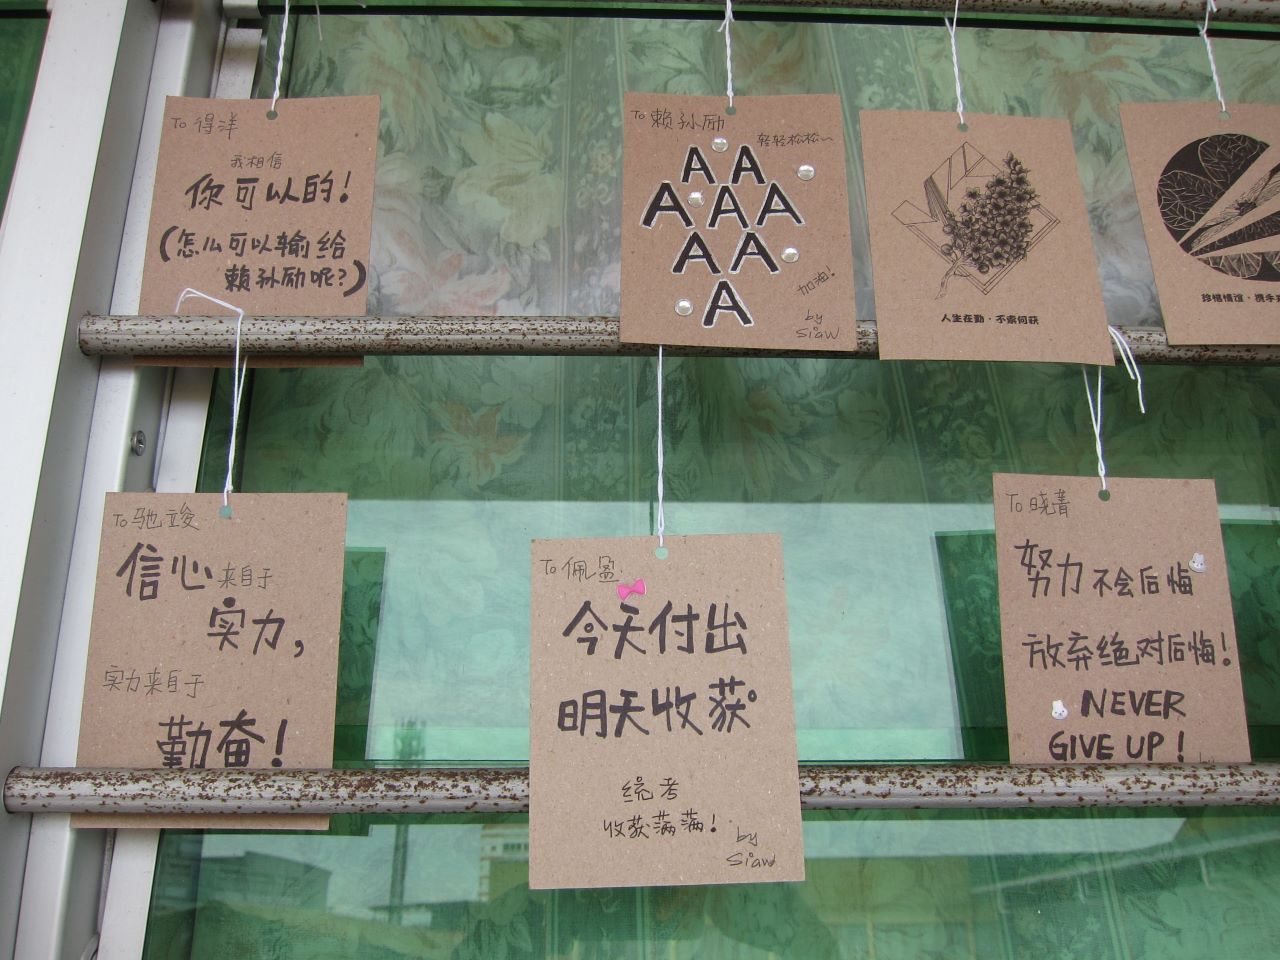 To 得洋
我相信
你可以的!
(怎么可以输给
赖孙励呢?)
To 赖孙励
轻轻松松~
A A
A A A
A A
A
加油!
by
Siaw
人生在勤·不索何获
珍惜情谊·携手
To 驰竣
信心来自于
实力,
实力来自于
勤奋!
To 佩盈.
今天付出
明天收获。
统考
收获满满!
by
Siaw
To 晓菁
努力不会后悔
放弃绝对后悔!
NEVER
GIVE UP!